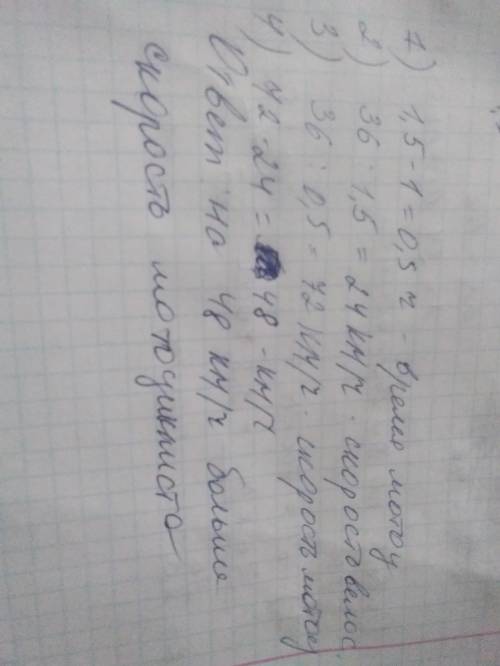 1) 1,5 - 1 = 0,5 ч - время мотоц
2) 36 : 1,5 = 24 км/ч - скорость велос.
3) 36 : 0,5 = 72 км/ч - скорость мотоц
4) 72 - 24 = 48 - км/ч
Ответ на 48 км/ч больше
скорость мотоциклиста